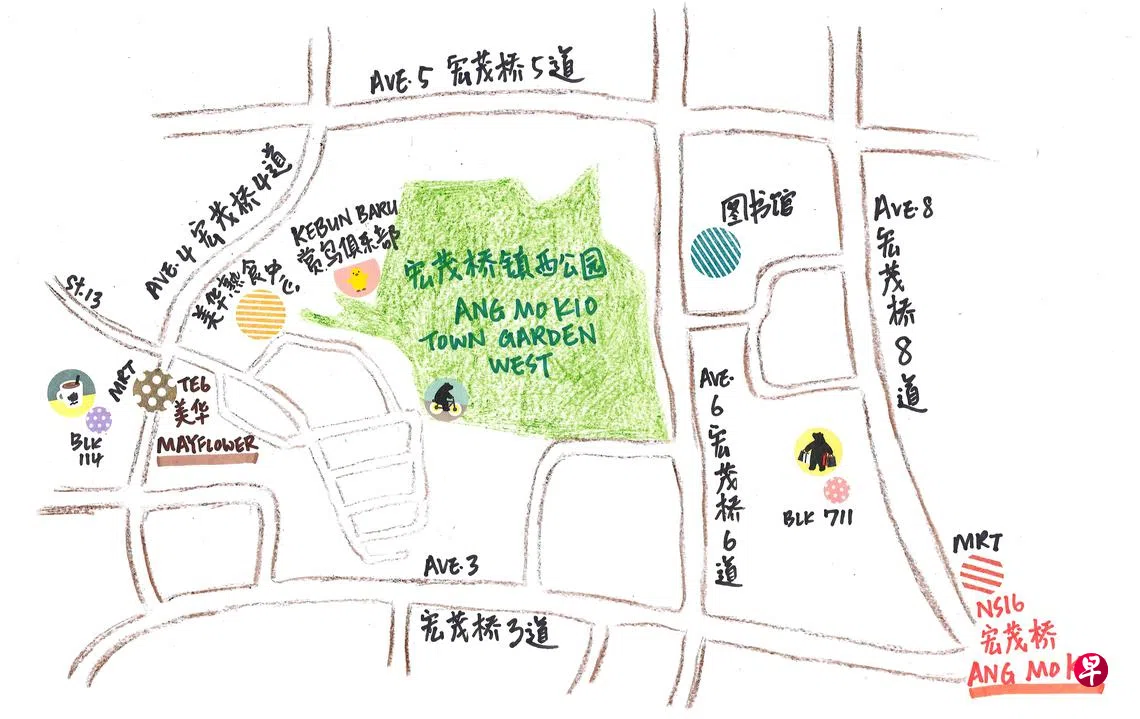 AVE.5 宏茂桥5道
AVE.4 宏茂桥4道
KEBUN BARU
赏鸟俱乐部
图书馆
AVE.8
宏茂桥8道
St.13
美华熟食中心
宏茂桥镇西公园
ANG MO KIO
TOWN GARDEN
WEST
MRT
TE6
美华
MAYFLOWER
BLK
114
AVE.
6
宏茂桥6道
BLK 711
AVE.3
宏茂桥3道
MRT
NS16
宏茂桥
ANG MO K
早